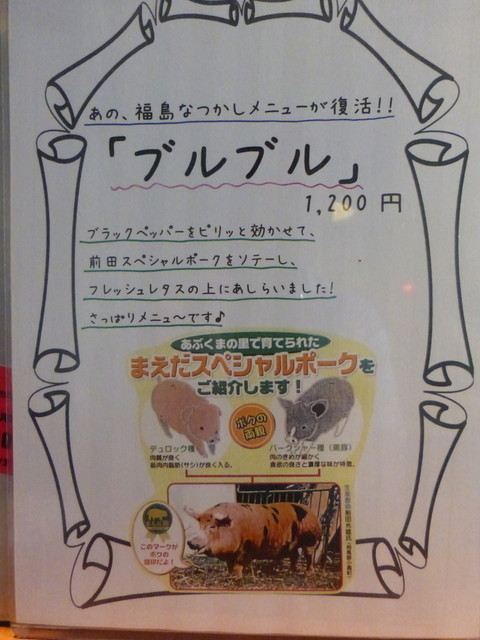 あの、福島なつかしメニューが復活!!
「ブルブル」
1,200 円
ブラックペッパーをピリッと効かせて、
前田スペシャルポークをソテーし、
フレッシュレタスの上にあしらいました!
さっぱりメニュ〜です♪
あぶくまの里で育てられた
まえだスペシャルポークを
ご紹介します!
ボクの
両親
デュロック種
肉質が良く
筋肉内脂肪(サシ)が良く入る。
バークシャー種(黒豚)
肉のきめが細かく
食欲の良さと濃厚な味が特徴。
このマークが
ボクの
目印だよ!